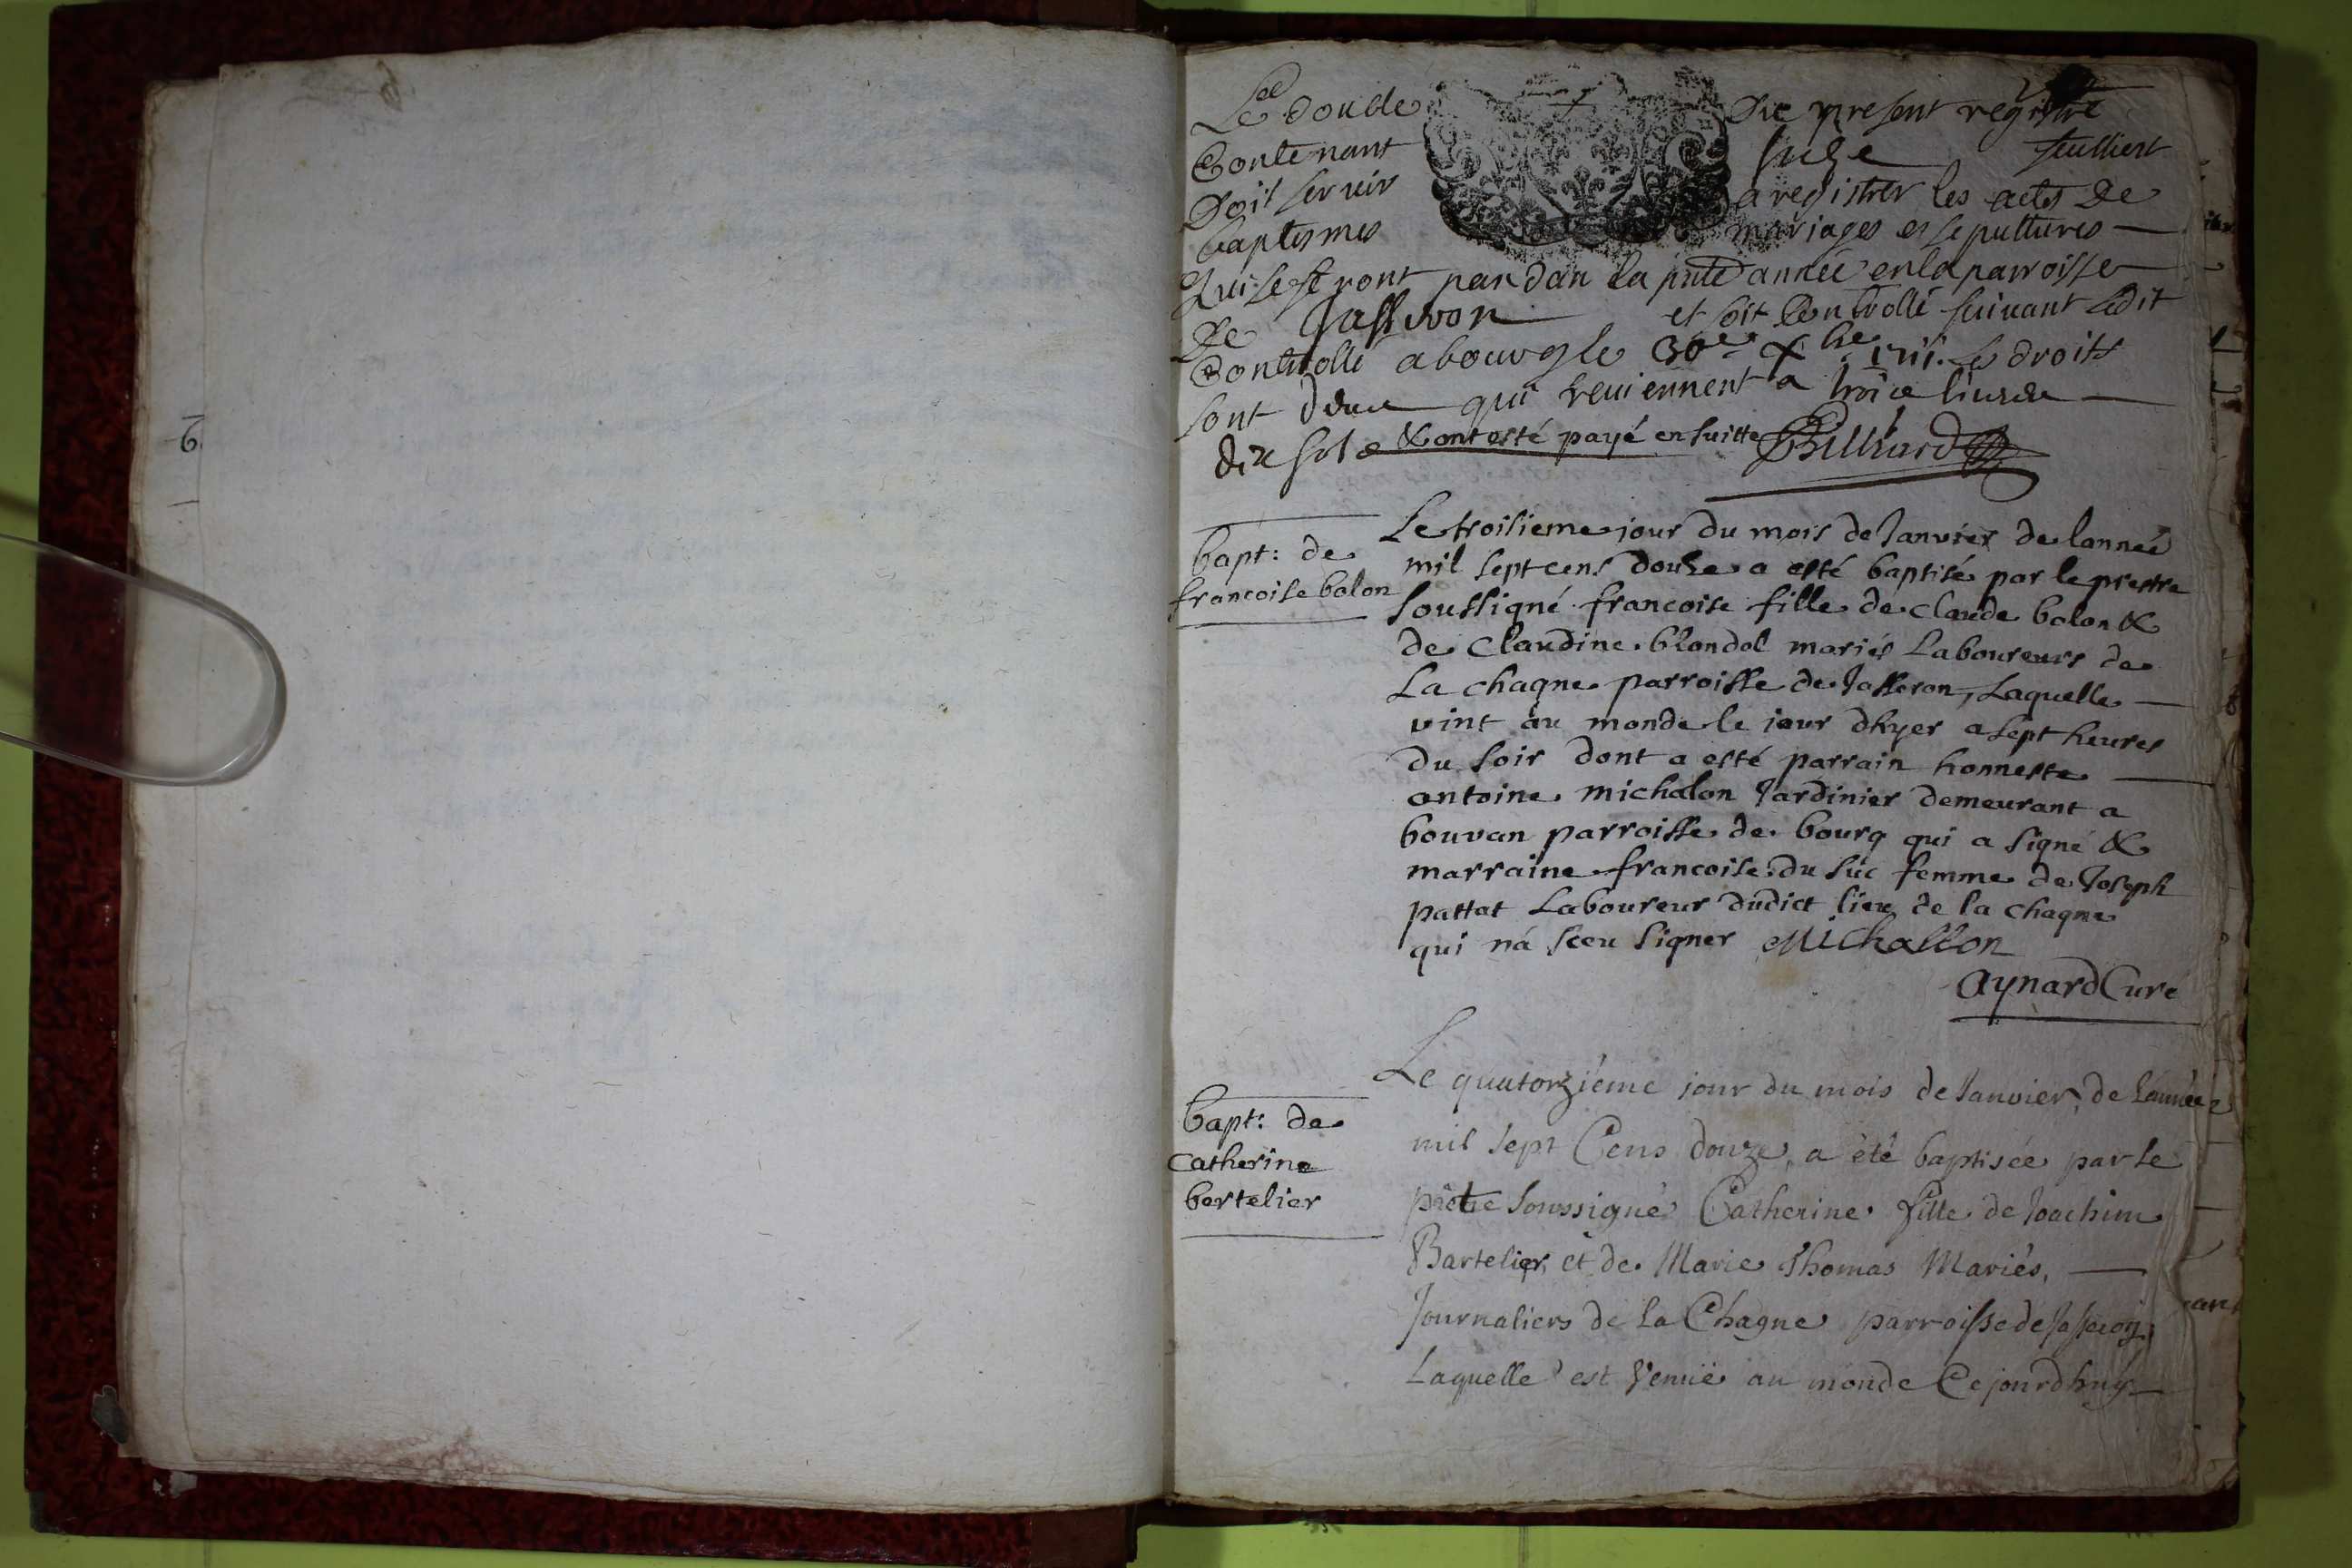 Le double Du present registre
Contenant seize feulliest
Doit servir a registrer les actes De
baptesmes mariages et sepultures
Qui se feront pandan la pnte année en la parroisse
De Jasseron et soit Controllé suivant Ledit
Controllé a bourg le 30e Xbre 1711. Les droits
sont deue qui reviennent a troice livres
dix sols & ont esté payé en suitte Billiard
bapt: de
francoise bolon
Le troisieme jour du mois de Janvier de lannée
mil sept cens douse a esté baptisée par le prestre
soussigné francoise fille de claude bolon &
de Claudine blondel mariés Laboureurs de
La chagne parroisse de Jasseron, Laquelle
vint au monde le iour dhyer a sept heures
du soir dont a esté parrain honneste
antoine michalon Jardinier demeurant a
bouvan parroisse de bourg qui a signé &
marraine francoise du suc femme de Joseph
pattat Laboureur dudict lieu de la chagne
qui ná sceu signer Michallon
Aynard Curé
bapt: de
catherine
bertelier
Le quatorzième jour du mois de Janvier, de l'année
mil sept Cens douze, a été baptisée par le
prêtre soussigné Catherine fille de Joachim
Bartelier, et de Marie Thomas Mariés,
Journaliers de la Chagne parroisse de Jasseron,
Laquelle est venuë au monde Ce jourdhuy